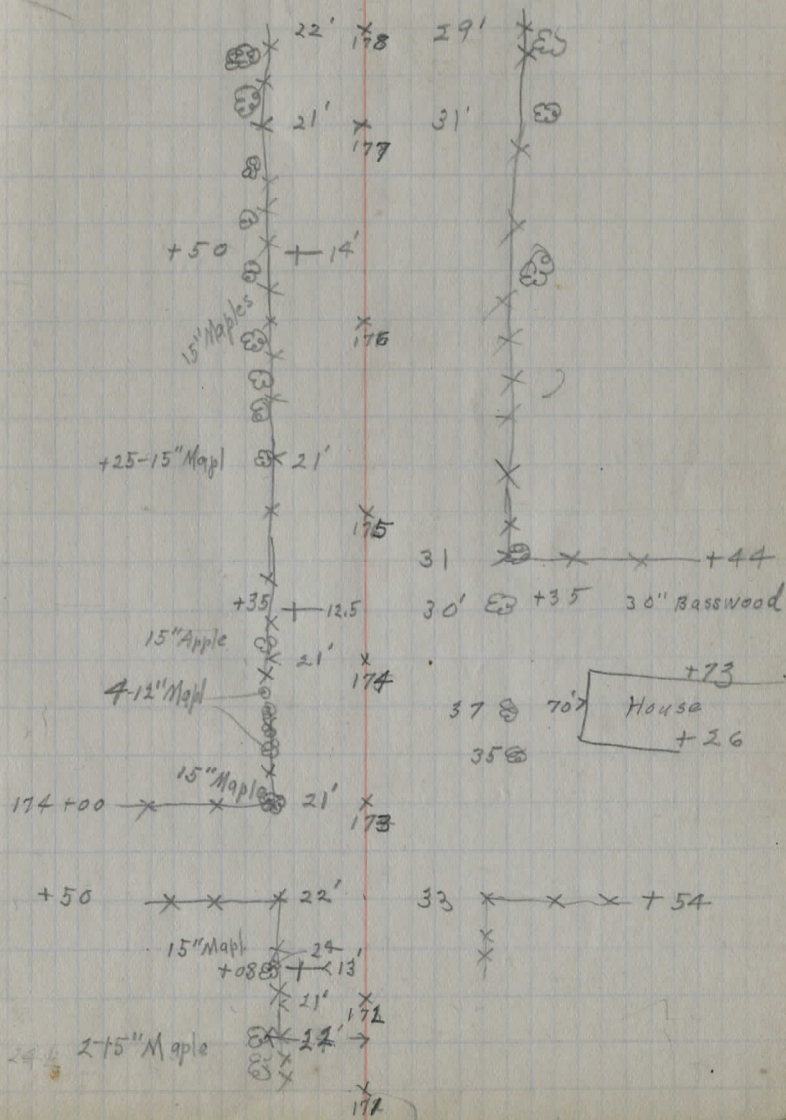 22' 178 29'
21' 177 31'
+50 14'
15" Maples 176
+25-15" Mapl 21'
175
31 +44
+35 12.5 30' +35 30" Basswood
15" Apple 21'
174 +73
4-12" Mapl 37 70' House
35 +26
15" Maple
174+00 21' 173
+50 22' 33 +54
15" Mapl 24
+08 13'
21' 172
2-15" Maple 22'
171